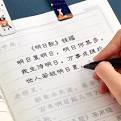 《明日歌》钱福
明日复明日，明日何其多，
我生待明日，万事成蹉跎
世人若被明日累，